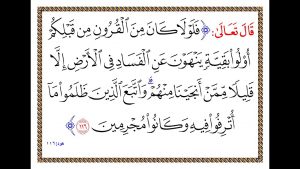 قَالَ تَعَالَىٰ: ﴿فَلَوْلَا كَانَ مِنَ ٱلْقُرُونِ مِن قَبْلِكُمْ
أُو۟لُوا۟ بَقِيَّةٍ يَنْهَوْنَ عَنِ ٱلْفَسَادِ فِى ٱلْأَرْضِ إِلَّا
قَلِيلًا مِّمَّنْ أَنجَيْنَا مِنْهُمْ ۗ وَٱتَّبَعَ ٱلَّذِينَ ظَلَمُوا۟ مَآ
أُتْرِفُوا۟ فِيهِ وَكَانُوا۟ مُجْرِمِينَ ١١٦﴾
هود: ١١٦